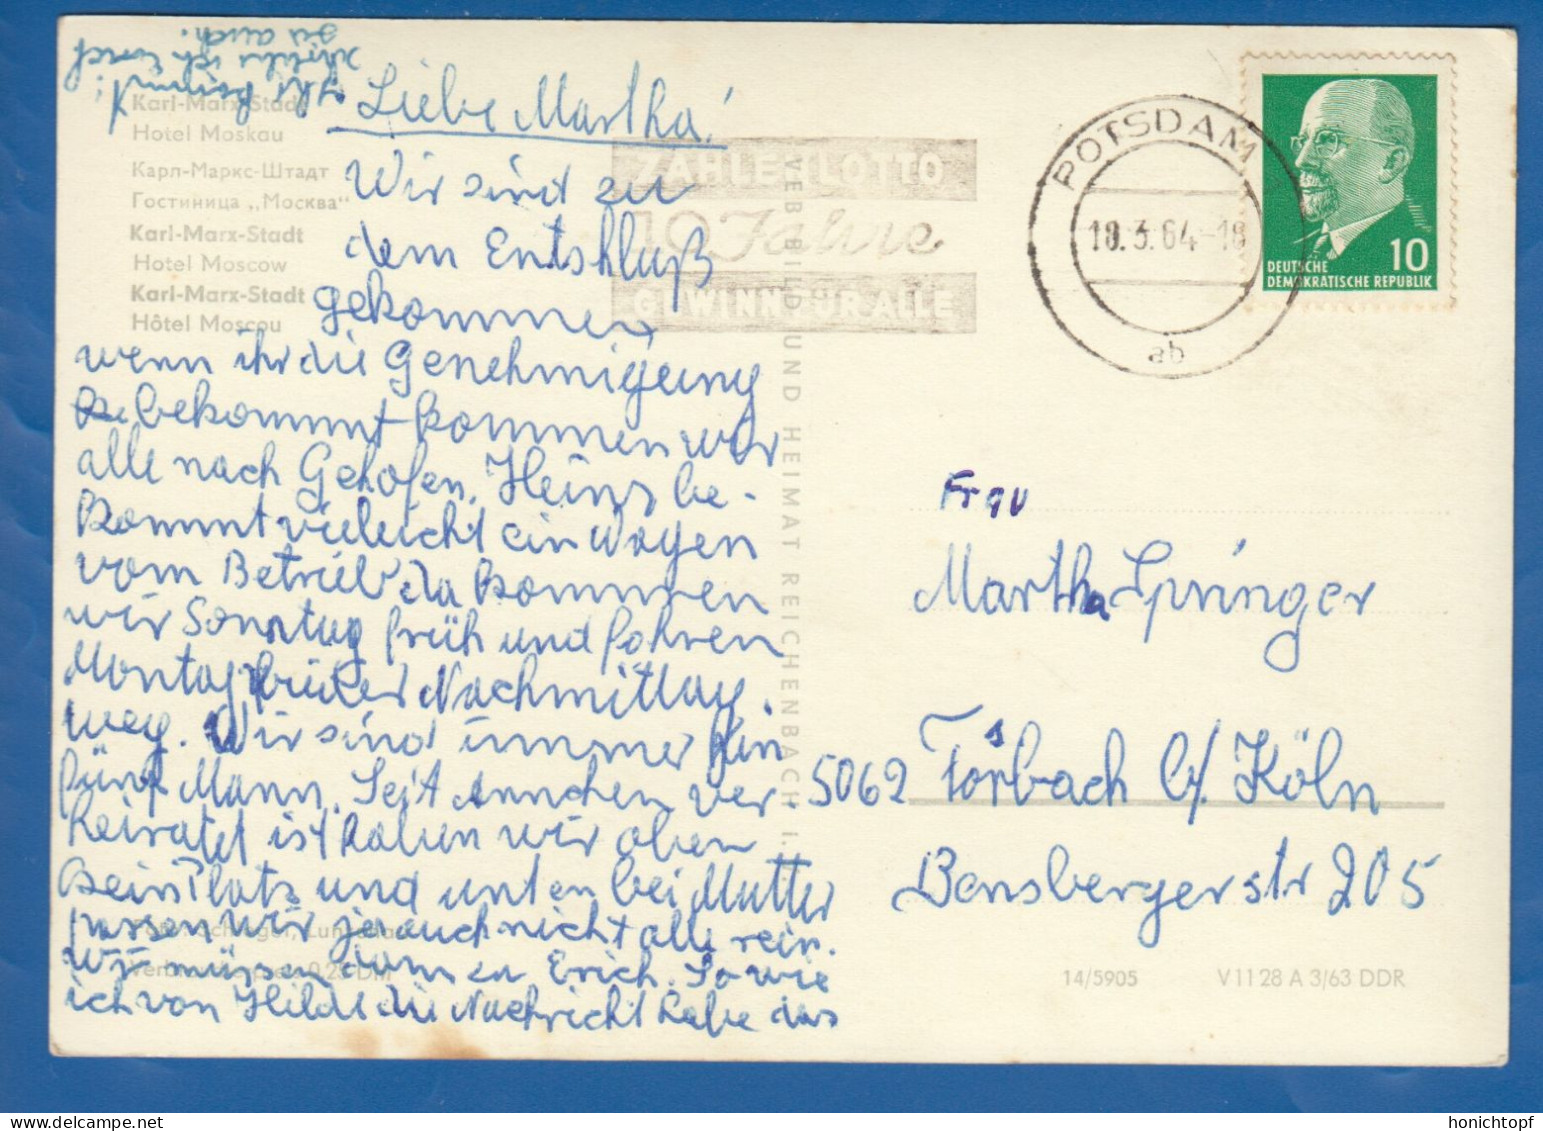 Karl-Marx-Stadt
Hotel Moskau
Карл-Маркс-Штадт
Гостиница „Москва"
Karl-Marx-Stadt
Hotel Moscow
Karl-Marx-Stadt
Hôtel Moscou
Liebe Martha!
Wir sind zu
dem Entshluß
gekommen
wenn ihr die Genehmigung
bekommt kommen wir
alle nach Gehofen. Heinz be-
kommt vieleicht ein Wagen
vom Betrieb da kommen
wir Sonntag früh und fahren
Montag Nachmittag
weg. Wir sind immer hin
fünf Mann. Seit Annchen ver-
heiratet ist haben wir oben
kein Platz und unten bei Mutter
passen wir ja auch nicht alle rein.
Wir müssen dann zu Erich. So wie
ich von Hilde die Nachricht habe das
ich Euch
du auch.
ZAHLENLOTTO
10 Jahre
GEWINN FÜR ALLE
POTSDAM
18.3.64-18
ab
DEUTSCHE
DEMOKRATISCHE REPUBLIK
10
VEB BILD UND HEIMAT REICHENBACH I.
Frau
Martha Springer
5062 Forsbach b/ Köln
Bensbergerstr 205
14/5905
V 11 28 A 3/63 DDR